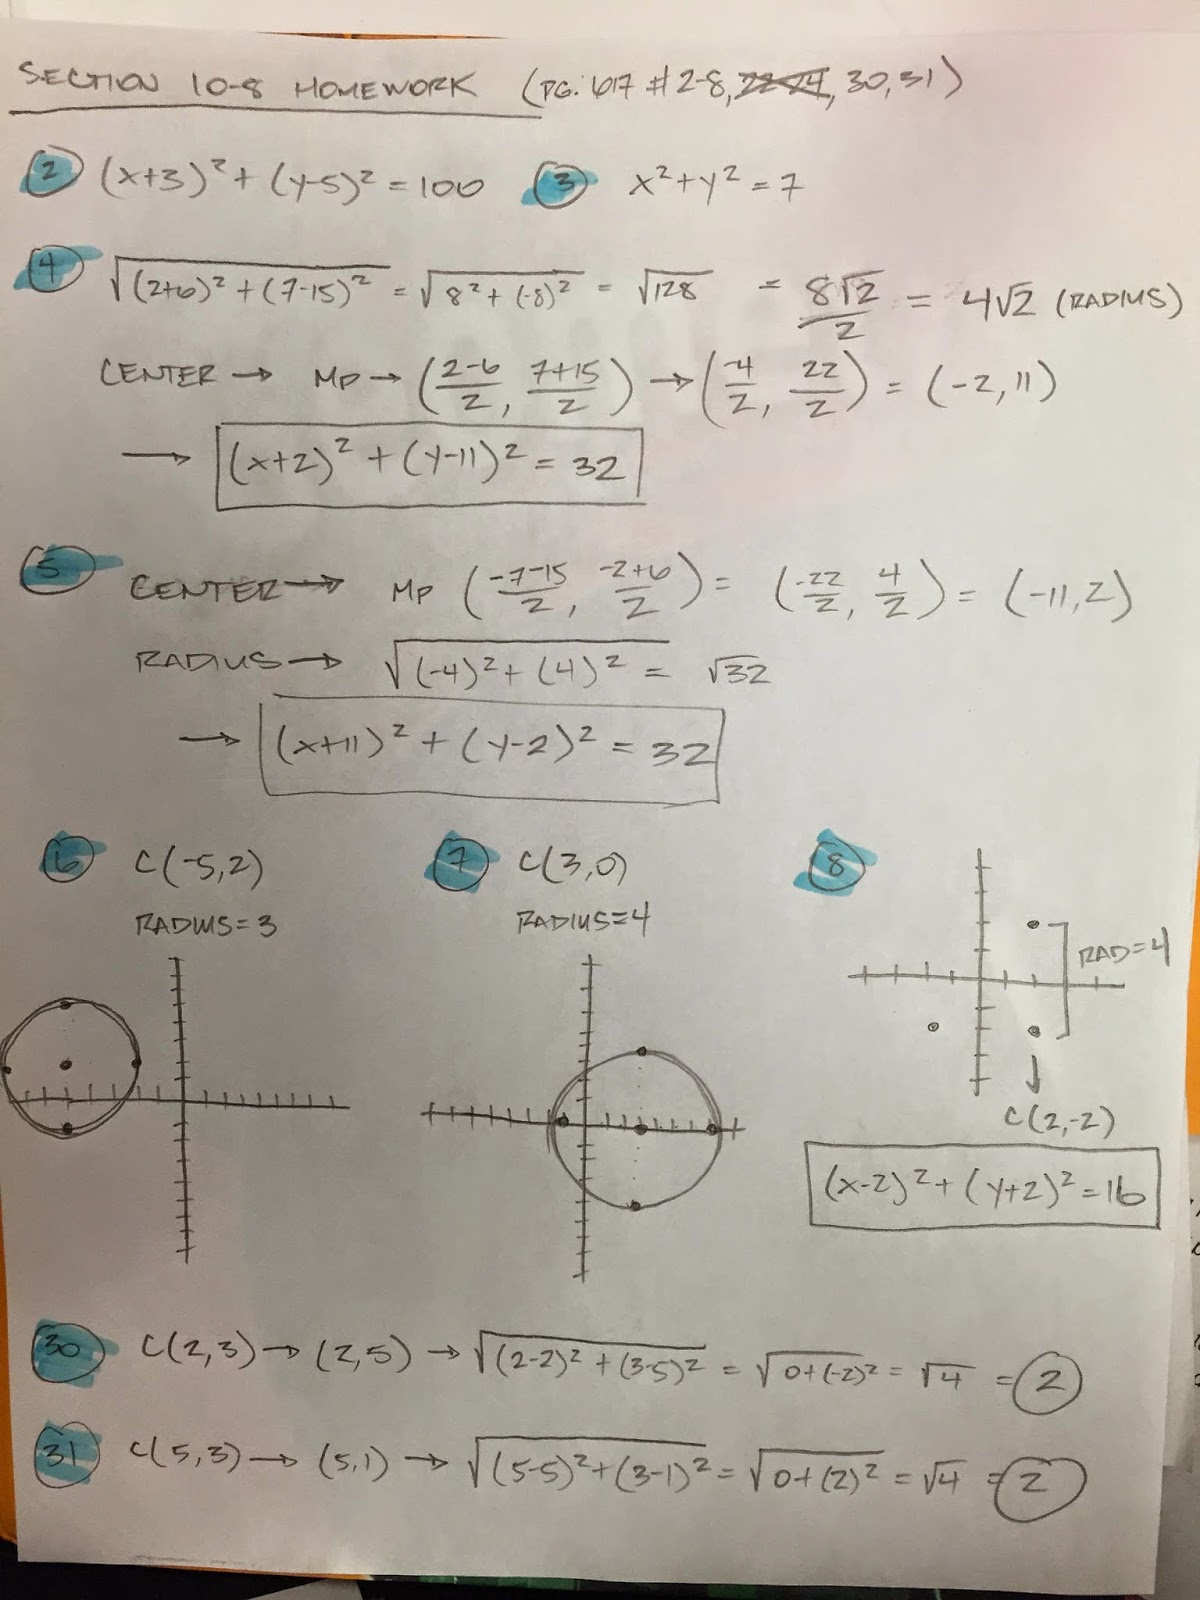 SECTION 10-8 HOMEWORK (PG. 617 # 2-8, 22-24, 30, 31)
2 (x+3)² + (y-5)² = 100 3 x² + y² = 7
4 √(2+6)² + (7-15)² = √8² + (-8)² = √128 = 8√2/2 = 4√2 (RADIUS)
CENTER → MP → (2-6/2, 7+15/2) → (-4/2, 22/2) = (-2, 11)
→ (x+2)² + (y-11)² = 32
5 CENTER → MP (-7-15/2, -2+6/2) = (-22/2, 4/2) = (-11, 2)
RADIUS → √(-4)² + (4)² = √32
→ (x+11)² + (y-2)² = 32
6 C(-5,2)
RADIUS = 3
7 C(3,0)
RADIUS = 4
8
RAD = 4
C(2,-2)
(x-2)² + (y+2)² = 16
30 C(2,3) → (2,5) → √(2-2)² + (3-5)² = √0+(-2)² = √4 = 2
31 C(5,3) → (5,1) → √(5-5)² + (3-1)² = √0+(2)² = √4 = 2